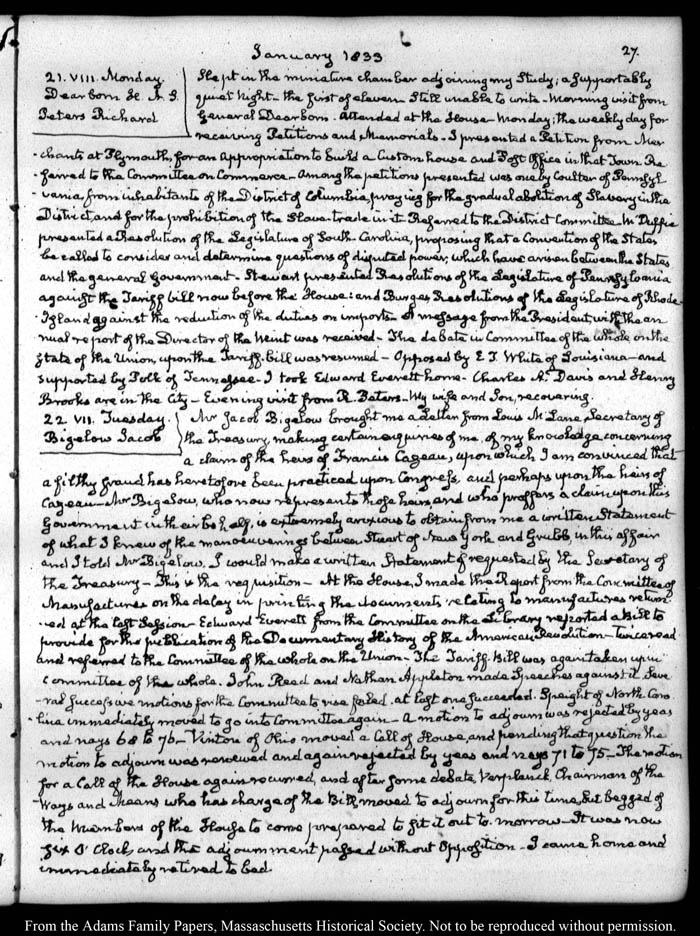 January 1833
27.
21. VIII. Monday.
Dearborn H. A. S.
Peters Richard
Slept in the miniature chamber adjoining my Study; a supportably
quiet night - the first of eleven. Still unable to write - Morning visit from
General Dearborn. Attended at the House - Monday; the weekly day for
receiving Petitions and Memorials. I presented a Petition from Mer
-chants at Plymouth, for an appropriation to build a Custom house and Post Office in that Town. Re
-ferred to the Committee on Commerce - Among the petitions presented was one by Coulter of Pensyl
-vania, from inhabitants of the District of Columbia, praying for the gradual abolition of Slavery in the
District, and for the prohibition of the Slave-trade in it. Referred to the District Committee. McDuffie
presented a Resolution of the Legislature of South-Carolina, proposing that a Convention of the States
be called to consider and determine questions of disputed power, which have arisen between the States
and the general Government - Stewart presented Resolutions of the Legislature of Pennsylvania
against the Tariff bill now before the House: and Burges Resolutions of the Legislature of Rhode-
Island against the reduction of the duties on imports - A message from the President with the an
nual report of the Director of the Mint was received - The debate in Committee of the whole on the
State of the Union, upon the Tariff-bill was resumed - Opposed by E. D. White of Louisiana - and
supported by Polk of Tennessee - I took Edward Everett home - Charles A. Davis and Henry
Brooks are in the City - Evening visit from R. Peters - My wife and Son, recovering.
22. VII. Tuesday.
Bigelow Jacob
Mr Jacob Bigelow brought me a Letter from Louis McLane, Secretary of
the Treasury, making certain enquiries of me, of my knowledge concerning
a claim of the heirs of Francis Cazeau, upon which I am convinced that
a filthy fraud has heretofore been practiced upon Congress, and perhaps upon the heirs of
Cazeau - Mr Bigelow, who now represents those heirs, and who proffers a claim upon this
Government in their behalf, is extremely anxious to obtain from me a written Statement
of what I knew of the manoeuverings between Stuart of New York and Grubb, in this affair
and I told Mr Bigelow, I would make a written Statement if requested by the Secretary of
the Treasury - This is the requisition - At the House, I made the Report from the Committee of
Manufactures on the delay in printing the documents, relating to manufactures return
-ed at the last Session - Edward Everett from the Committee on the Library reported a Bill to
provide for the publication of the Documentary History of the American Revolution - twice read
and referred to the Committee of the whole on the Union - The Tariff Bill was again taken up in
Committee of the whole. John Reed and Nathan Appleton made Speeches against it. Seve
-ral successive motions for the Committee to rise failed, at last one succeeded. Speight of North Caro
-lina immediately moved to go into Committee again - A motion to adjourn was rejected by yeas
and nays 68 to 76 - Vinton of Ohio moved a Call of House, and pending that question the
motion to adjourn was renewed and again rejected by yeas and nays 71 to 75 - The motion
for a Call of the House again recurred, and after some debate Verplanck, Chairman of the
Ways and Means who has charge of the Bill, moved to adjourn for this time, but begged of
the Members of the House to come prepared to sit it out to-morrow - It was now
six O'Clock, and the adjournment passed without Opposition - I came home and
immediately retired to bed.
From the Adams Family Papers, Massachusetts Historical Society. Not to be reproduced without permission.